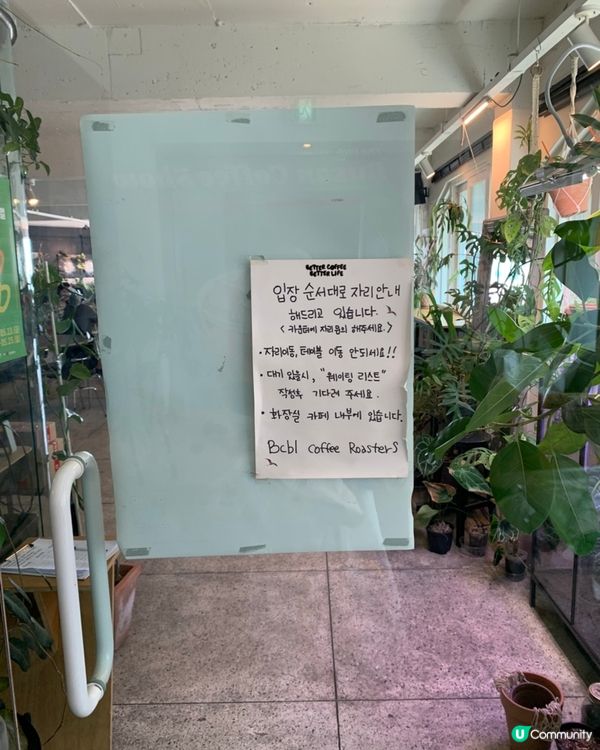 BETTER COFFEE
BETTER LIFE
입장 순서대로 자리안내
해드리고 있습니다.
< 카운터에 자리문의 해주세요.>
· 자리이동, 테이블 이동 안되세요!!
· 대기 있을시, "웨이팅 리스트"
작성후 기다려 주세요.
· 화장실 카페 내부에 있습니다.
Bcbl Coffee Roasters
U Community